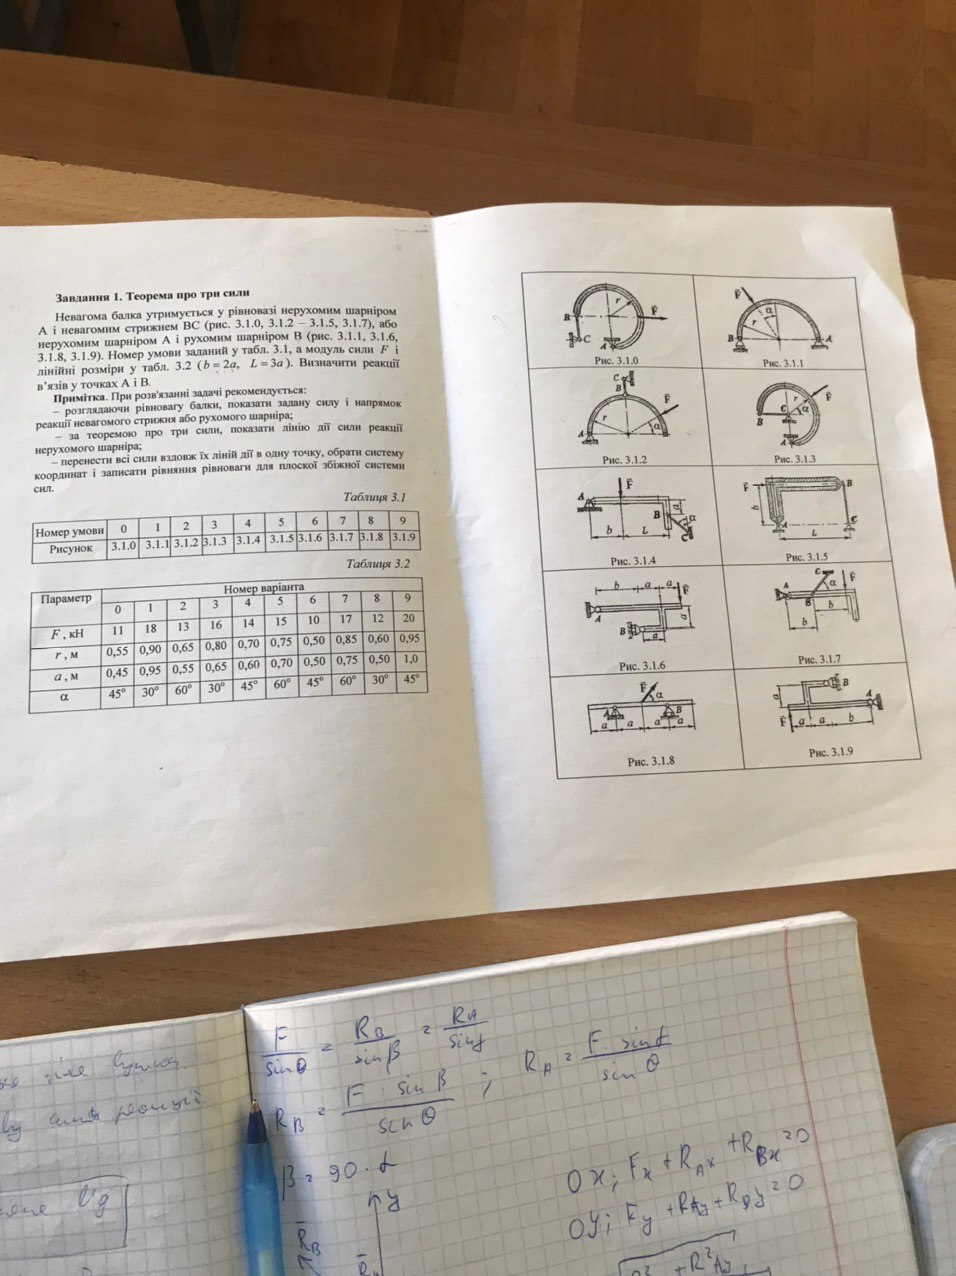 Завдання 1. Теорема про три сили
Невагома балка утримується у рівновазі нерухомим шарніром
А і невагомим стрижнем ВС (рис. 3.1.0, 3.1.2 – 3.1.5, 3.1.7), або
нерухомим шарніром А і рухомим шарніром В (рис. 3.1.1, 3.1.6,
3.1.8, 3.1.9). Номер умови заданий у табл. 3.1, а модуль сили F і
лінійні розміри у табл. 3.2 (b = 2a, L = 3a). Визначити реакції
в'язів у точках А і В.
Примітка. При розв'язанні задачі рекомендується:
– розглядаючи рівновагу балки, показати задану силу і напрямок
реакції невагомого стрижня або рухомого шарніра;
– за теоремою про три сили, показати лінію дії сили реакції
нерухомого шарніра;
– перенести всі сили вздовж їх ліній дії в одну точку, обрати систему
координат і записати рівняння рівноваги для плоскої збіжної системи
сил.
Таблиця 3.1
Номер умови 0 1 2 3 4 5 6 7 8 9
Рисунок 3.1.0 3.1.1 3.1.2 3.1.3 3.1.4 3.1.5 3.1.6 3.1.7 3.1.8 3.1.9
Таблиця 3.2
Параметр Номер варіанта
0 1 2 3 4 5 6 7 8 9
F, кН 11 18 13 16 14 15 10 17 12 20
r, м 0,55 0,90 0,65 0,80 0,70 0,75 0,50 0,85 0,60 0,95
a, м 0,45 0,95 0,55 0,65 0,60 0,70 0,50 0,75 0,50 1,0
α 45° 30° 60° 30° 45° 60° 45° 60° 30° 45°
B r F̄ C A
Рис. 3.1.0
F̄ α r B A
Рис. 3.1.1
C B F̄ r α A
Рис. 3.1.2
F̄ r C α B A
Рис. 3.1.3
A F̄ B a α b L C
Рис. 3.1.4
F̄ B b A C L
Рис. 3.1.5
b a a F̄ A B a a
Рис. 3.1.6
C F̄ A α B b b
Рис. 3.1.7
F̄ α A B a a a a
Рис. 3.1.8
B a A F̄ a a b
Рис. 3.1.9
F/sin θ = R_B/sin β = R_A/sin γ
R_B = F · sin β/sin θ ; R_A = F · sin γ/sin θ
β = 90 · α
y
R̄_B
OX; F_x + R_Ax + R_Bx = 0
OY; F_y + R_Ay + R_By = 0